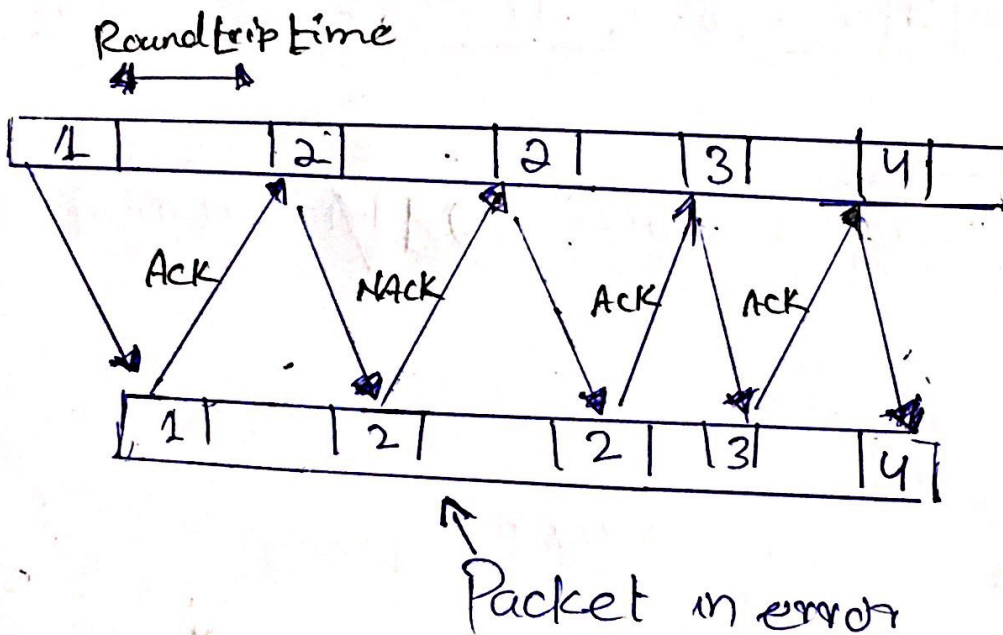 Round trip time
1 2 2 3 4
ACK NACK ACK ACK
1 2 2 3 4
Packet in error